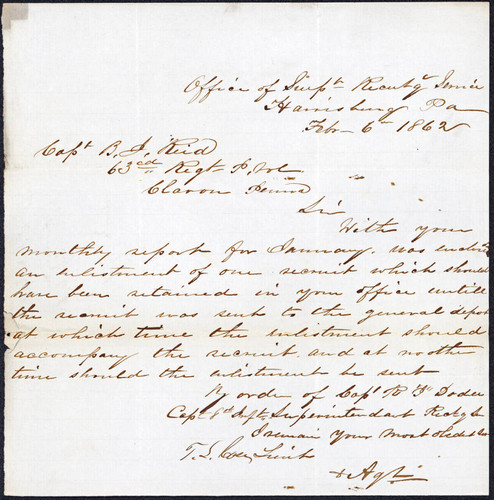 Office of Supt. Recutg. Service
Harrisburg Pa
Feb 6th 1862
Capt B. J. Reid
63rd Regt P. Vol
Clarion Penna
Sir
With your
monthly report for January. was enclosed
an enlistment of one recruit which should
have been retained in your office untill
the recruit was sent to the general depot
at which time the enlistment should
accompany the recruit. and at no other
time should the enlistment be sent
By order of Capt R I Dodge
Capt 8th Infty Superintendant Rectg S
I remain your Most Obedt
T. S. Lieut
& Agt